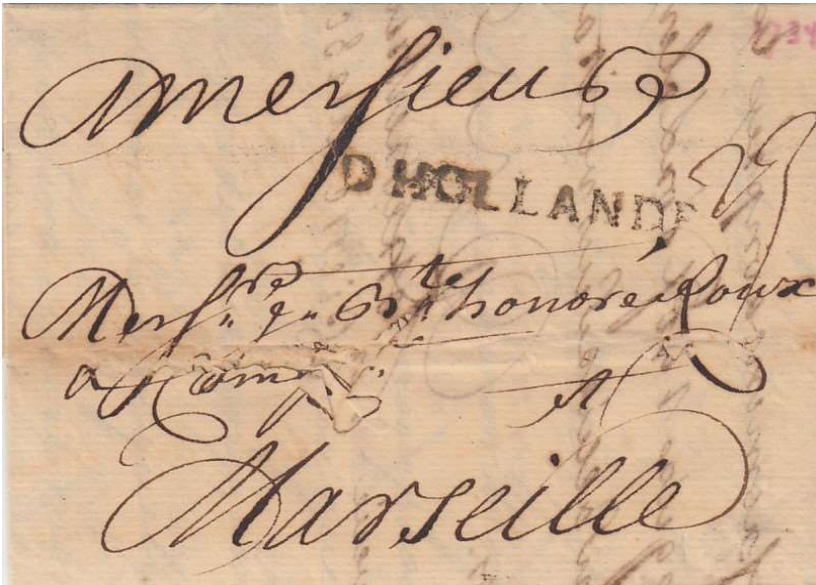 A messieurs
D HOLLANDE
23
Mess.rs J.n B.te honoré Roux
& Comp
A
Marseille